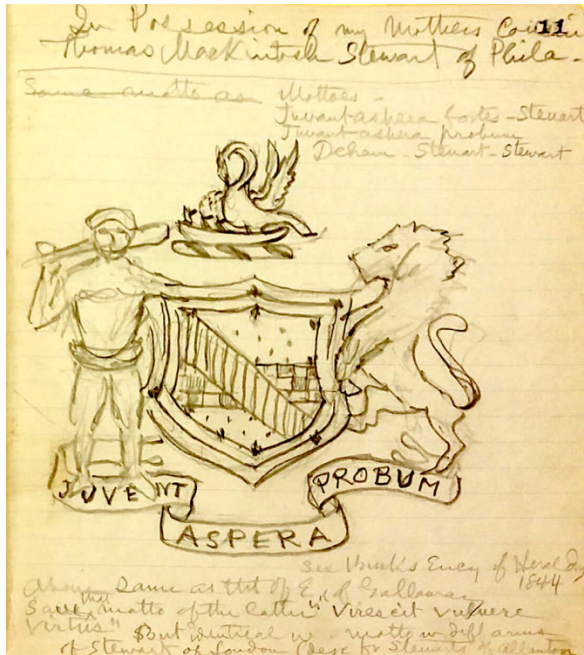 In Possession of my Mothers Cousin 11
Thomas Mackintosh Stewart of Phila -
Same motto as Mottoes -
Juvant aspera fortes - Steuart
Juvant aspera probum
Denham - Steuart - Stewart
JUVENT
PROBUM
ASPERA
see Burks Ency of Heraldry
1844
Above same as that of E. of Galloway
Save that motto of the latter is "Virescit vulnere
Virtus" But identical motto
of Stewart of London (desc fr Steuarts of Allanton